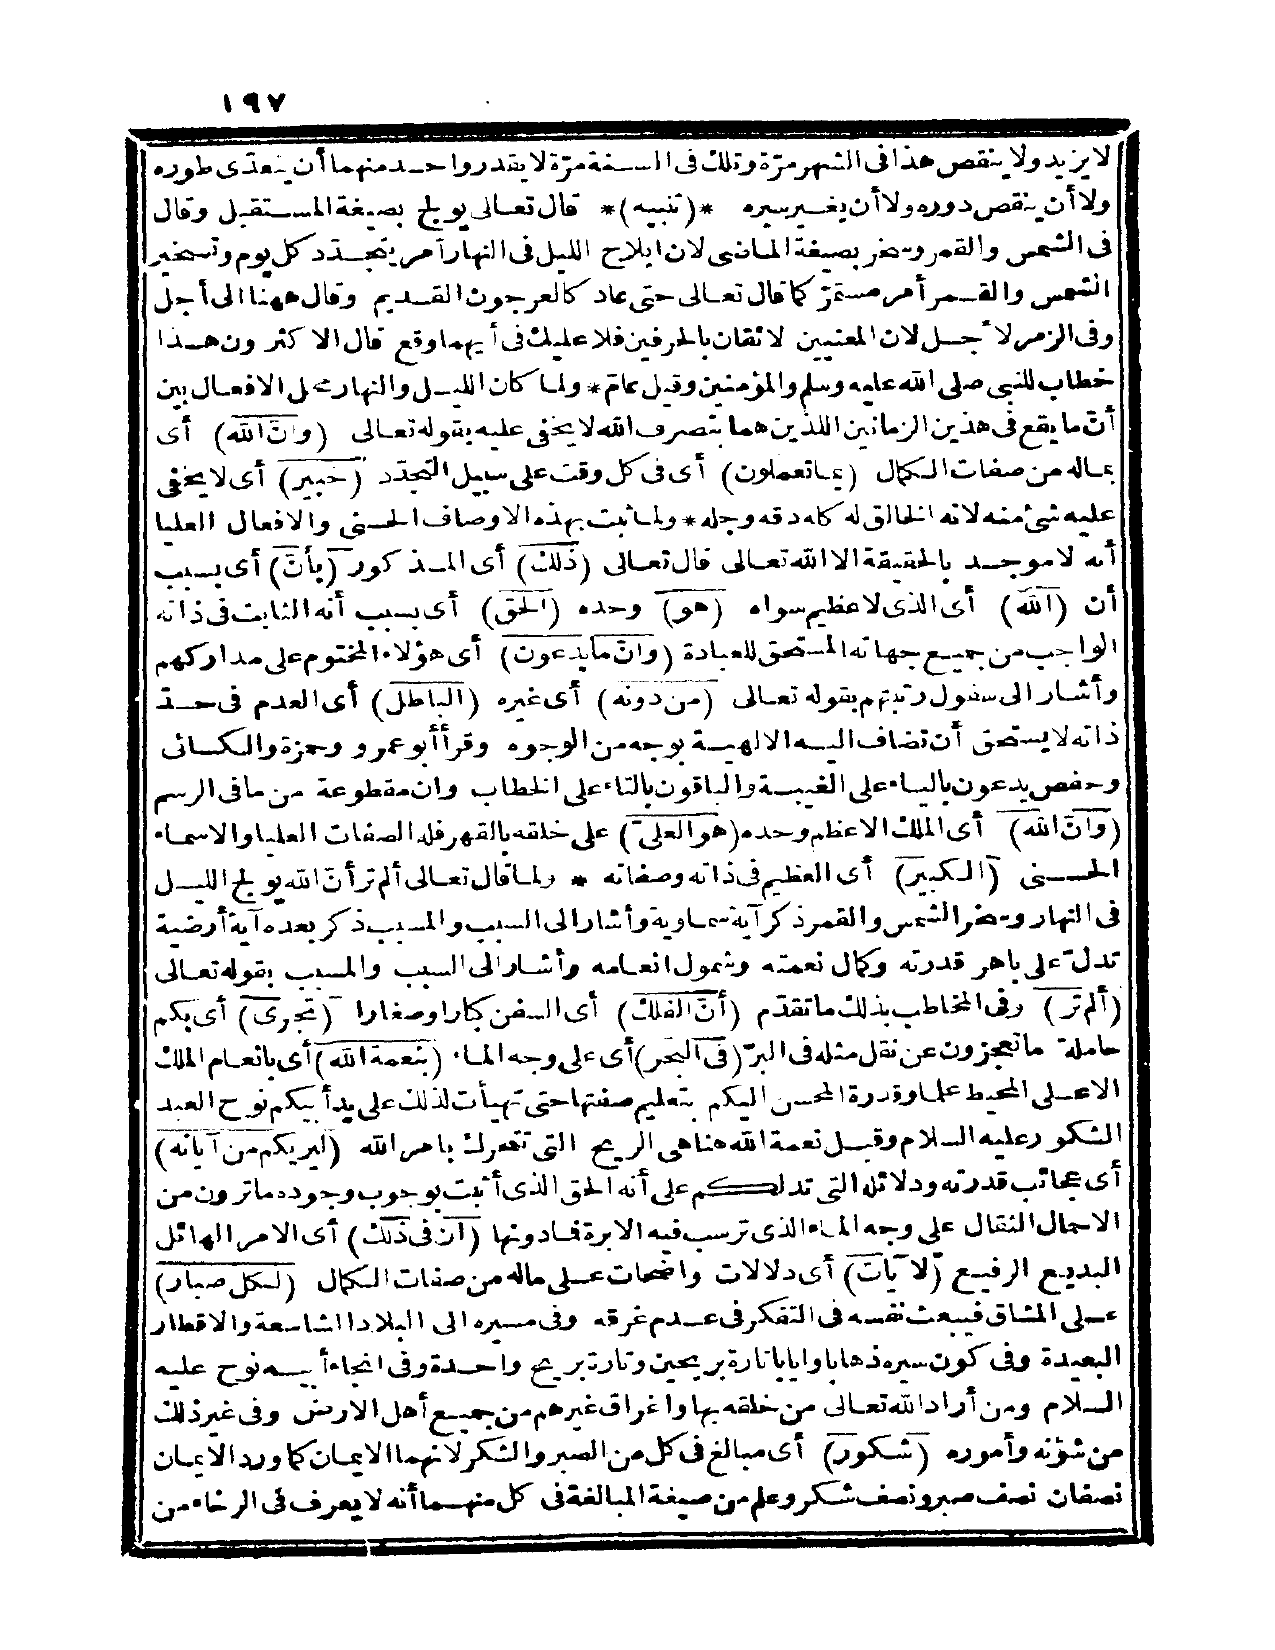 ١٩٧
لا يزيد ولا ينقص هذا في الشهر مرّة وتلك في السنة مرّة لا يقدر واحد منهما أن يتعدّى طوره
ولا أن ينقص دوره ولا أن يغير سيره * (تنبيه) * قال تعالى يولج بصيغة المستقبل وقال
في الشمس والقمر وسخر بصيغة الماضى لان ايلاج الليل في النهار أمر يتجدّد كل يوم وتسخير
الشمس والقمر أمر مستمرّ كما قال تعالى حتى عاد كالعرجون القديم وقال ههنا الى أجل
وفي الزمر لأجل لان المعنيين لائقان بالحرفين فلا عليك في أيهما وقع قال الاكثرون هذا
خطاب للنبي صلى الله عليه وسلم والمؤمنين وقيل عامّ * ولما كان الليل والنهار محل الافعال بين
أن ما يقع في هذين الزمانين اللذين هما بتصرف الله لا يخفى عليه بقوله تعالى (وانّ الله) أى
بماله من صفات الكمال (بما تعملون) أى في كل وقت على سبيل التجدّد (خبير) أى لا يخفى
عليه شئ منه لانه الخالق له كله دقه وجله * ولما ثبت بهذه الاوصاف الحسنى والافعال العليا
أنه لا موجد بالحقيقة الا الله تعالى قال تعالى (ذلك) أى المذكور (بأنّ) أى بسبب
أن (الله) أى الذى لا عظيم سواه (هو) وحده (الحق) أى بسبب أنه الثابت في ذاته
الواجب من جميع جهاته المستحق للعبادة (وانّ ما يدعون) أى هؤلاء المختوم على مداركهم
وأشار الى سفول رتبتهم بقوله تعالى (من دونه) أى غيره (الباطل) أى العدم في حدّ
ذاته لا يستحق أن تضاف اليه الالهية بوجه من الوجوه وقرأ أبو عمرو وحمزة والكسائى
وحفص يدعون بالياء على الغيبة والباقون بالتاء على الخطاب وان مقطوعة من ما في الرسم
(وانّ الله) أى الملك الاعظم وحده (هو العلىّ) على خلقه بالقهر فله الصفات العليا والاسماء
الحسنى (الكبير) أى العظيم في ذاته وصفاته * ولما قال تعالى ألم تر أنّ الله يولج الليل
في النهار وسخر الشمس والقمر ذكر آية سماوية وأشار الى السبب والمسبب ذكر بعده آية أرضية
تدلّ على باهر قدرته وكمال نعمته وشمول انعامه وأشار الى السبب والمسبب بقوله تعالى
(ألم تر) وفي المخاطب بذلك ما تقدّم (أنّ الفلك) أى السفن كبارا وصغارا (تجرى) أى بكم
حاملة ما تعجزون عن نقل مثله في البرّ (في البحر) أى على وجه الماء (بنعمة الله) أى بانعام الملك
الاعلى المحيط علما وقدرة المحسن اليكم بتعليم صنعتها حتى تهيأت لذلك على يد أبيكم نوح العبد
الشكور عليه السلام وقيل نعمة الله هنا هى الريح التى تتحرك بامر الله (ليريكم من آياته)
أى عجائب قدرته ودلائله التى تدلكم على أنه الحق الذى أثبت بوجوب وجوده ما ترون من
الاحمال الثقال على وجه الماء الذى ترسب فيه الابرة فادونها (ان في ذلك) أى الامر الهائل
البديع الرفيع (لآيات) أى دلالات واضحات على ماله من صفات الكمال (لكل صبار)
على المشاق فيبعث نفسه في التفكر في عدم غرقه وفي مسيره الى البلاد الشاسعة والاقطار
البعيدة وفي كون سيره ذهابا وايابا تارة بريحين وتارة بريح واحدة وفي انجاء أبيه نوح عليه
السلام ومن أراد الله تعالى من خلقه بها واغراق غيرهم من جميع أهل الارض وفي غير ذلك
من شؤنه وأموره (شكور) أى مبالغ في كل من الصبر والشكر لانهما الايمان كما ورد الايمان
نصفان نصف صبر ونصف شكر وعلم من صيغة المبالغة في كل منهما أنه لا يعرف في الرخاء من